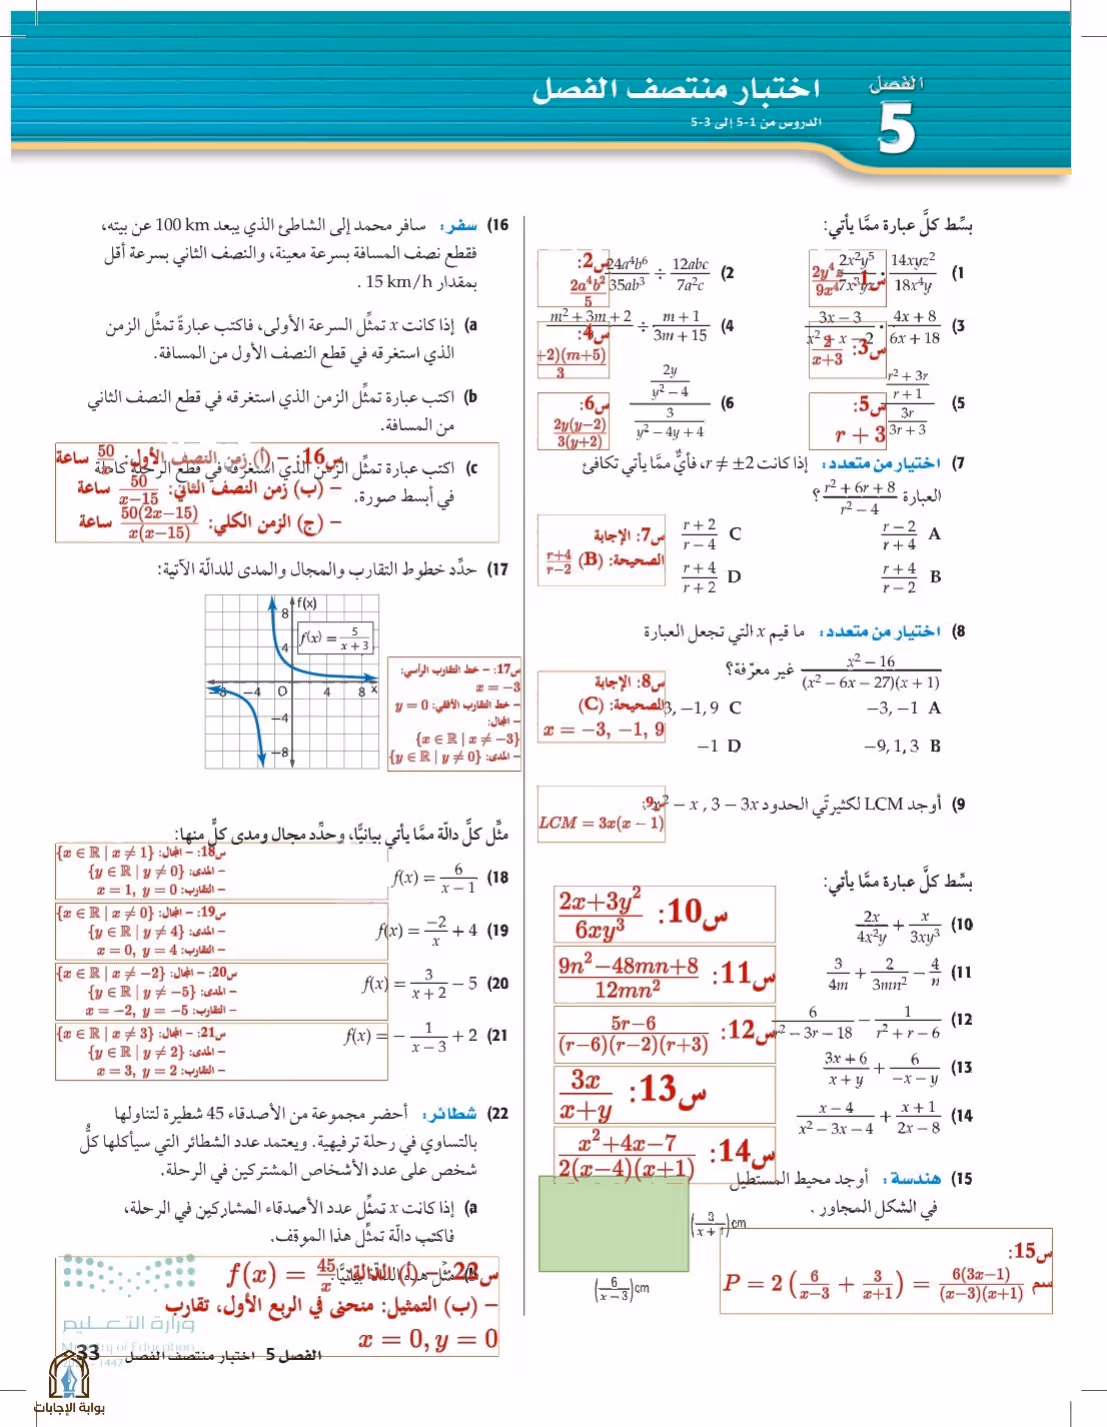 الفصل
5
اختبار منتصف الفصل
الدروس من 1-5 إلى 3-5
بسِّط كلَّ عبارة ممَّا يأتي:
(1 \frac{2x^2y^5}{7x^3yz} · \frac{14xyz^2}{18x^4y}
س1: \frac{2y^4z}{9x^4}
(2 \frac{24a^4b^6}{35ab^3} ÷ \frac{12abc}{7a^2c}
س2: \frac{2a^4b^2}{5}
(3 \frac{3x − 3}{x^2 + x − 2} · \frac{4x + 8}{6x + 18}
س3: \frac{2}{x+3}
(4 \frac{m^2 + 3m + 2}{} ÷ \frac{m + 1}{3m + 15}
س4: \frac{+2)(m+5)}{3}
(5 \frac{\frac{r^2 + 3r}{r + 1}}{\frac{3r}{3r + 3}}
س5: r + 3
(6 \frac{\frac{2y}{y^2 − 4}}{\frac{3}{y^2 − 4y + 4}}
س6: \frac{2y(y−2)}{3(y+2)}
(7 اختيار من متعدد: إذا كانت r ≠ ±2، فأيٌّ ممَّا يأتي تكافئ
العبارة \frac{r^2 + 6r + 8}{r^2 − 4} ؟
A \frac{r − 2}{r + 4} C \frac{r + 2}{r − 4}
B \frac{r + 4}{r − 2} D \frac{r + 4}{r + 2}
س7: الإجابة
الصحيحة: (B) \frac{r+4}{r−2}
(8 اختيار من متعدد: ما قيم x التي تجعل العبارة
\frac{x^2 − 16}{(x^2 − 6x − 27)(x + 1)} غير معرّفة؟
A −3, −1 C 3, −1, 9
B −9, 1, 3 D −1
س8: الإجابة
الصحيحة: (C)
x = −3, −1, 9
(9 أوجد LCM لكثيرتَي الحدود x^2 − x , 3 − 3x
س9:
LCM = 3x(x − 1)
بسِّط كلَّ عبارة ممَّا يأتي:
(10 \frac{2x}{4x^2y} + \frac{x}{3xy^3}
س10: \frac{2x+3y^2}{6xy^3}
(11 \frac{3}{4m} + \frac{2}{3mn^2} − \frac{4}{n}
س11: \frac{9n^2−48mn+8}{12mn^2}
(12 \frac{6}{r^2 − 3r − 18} − \frac{1}{r^2 + r − 6}
س12: \frac{5r−6}{(r−6)(r−2)(r+3)}
(13 \frac{3x + 6}{x + y} + \frac{6}{−x − y}
س13: \frac{3x}{x+y}
(14 \frac{x − 4}{x^2 − 3x − 4} + \frac{x + 1}{2x − 8}
س14: \frac{x^2+4x−7}{2(x−4)(x+1)}
(15 هندسة: أوجد محيط المستطيل
في الشكل المجاور .
(\frac{3}{x + 1})cm
(\frac{6}{x − 3})cm
س15:
P = 2 (\frac{6}{x−3} + \frac{3}{x+1}) = \frac{6(3x−1)}{(x−3)(x+1)} سم
(16 سفر: سافر محمد إلى الشاطئ الذي يبعد 100 km عن بيته،
فقطع نصف المسافة بسرعة معينة، والنصف الثاني بسرعة أقل
بمقدار 15 km/h .
(a إذا كانت x تمثِّل السرعة الأولى، فاكتب عبارةً تمثِّل الزمن
الذي استغرقه في قطع النصف الأول من المسافة.
(b اكتب عبارة تمثِّل الزمن الذي استغرقه في قطع النصف الثاني
من المسافة.
(c اكتب عبارة تمثِّل الزمن الذي استغرقه في قطع الرحلة كاملة
في أبسط صورة.
س16: – (أ) زمن النصف الأول: \frac{50}{x} ساعة
– (ب) زمن النصف الثاني: \frac{50}{x−15} ساعة
– (ج) الزمن الكلي: \frac{50(2x−15)}{x(x−15)} ساعة
(17 حدِّد خطوط التقارب والمجال والمدى للدالّة الآتية:
f(x)
8
4
f(x) = \frac{5}{x + 3}
−8 −4 O 4 8 x
−4
−8
س17: – خط التقارب الرأسي:
x = −3
– خط التقارب الأفقي: y = 0
– المجال:
{x ∈ ℝ | x ≠ −3}
– المدى: {y ∈ ℝ | y ≠ 0}
مثِّل كلَّ دالّة ممَّا يأتي بيانيًّا، وحدِّد مجال ومدى كلٍّ منها:
(18 f(x) = \frac{6}{x − 1}
س18: – المجال: {x ∈ ℝ | x ≠ 1}
– المدى: {y ∈ ℝ | y ≠ 0}
– التقارب: x = 1, y = 0
(19 f(x) = \frac{−2}{x} + 4
س19: – المجال: {x ∈ ℝ | x ≠ 0}
– المدى: {y ∈ ℝ | y ≠ 4}
– التقارب: x = 0, y = 4
(20 f(x) = \frac{3}{x + 2} − 5
س20: – المجال: {x ∈ ℝ | x ≠ −2}
– المدى: {y ∈ ℝ | y ≠ −5}
– التقارب: x = −2, y = −5
(21 f(x) = −\frac{1}{x − 3} + 2
س21: – المجال: {x ∈ ℝ | x ≠ 3}
– المدى: {y ∈ ℝ | y ≠ 2}
– التقارب: x = 3, y = 2
(22 شطائر: أحضر مجموعة من الأصدقاء 45 شطيرة لتناولها
بالتساوي في رحلة ترفيهية. ويعتمد عدد الشطائر التي سيأكلها كلُّ
شخص على عدد الأشخاص المشتركين في الرحلة.
(a إذا كانت x تمثِّل عدد الأصدقاء المشاركين في الرحلة،
فاكتب دالّة تمثِّل هذا الموقف.
(b مثِّل هذه الدالة بيانيًّا.
س22: – (أ) الدالة: f(x) = \frac{45}{x}
– (ب) التمثيل: منحنى في الربع الأول، تقارب
x = 0, y = 0
وزارة التعليم
Ministry of Education
1447
الفصل 5 اختبار منتصف الفصل 33
بوابة الإجابات